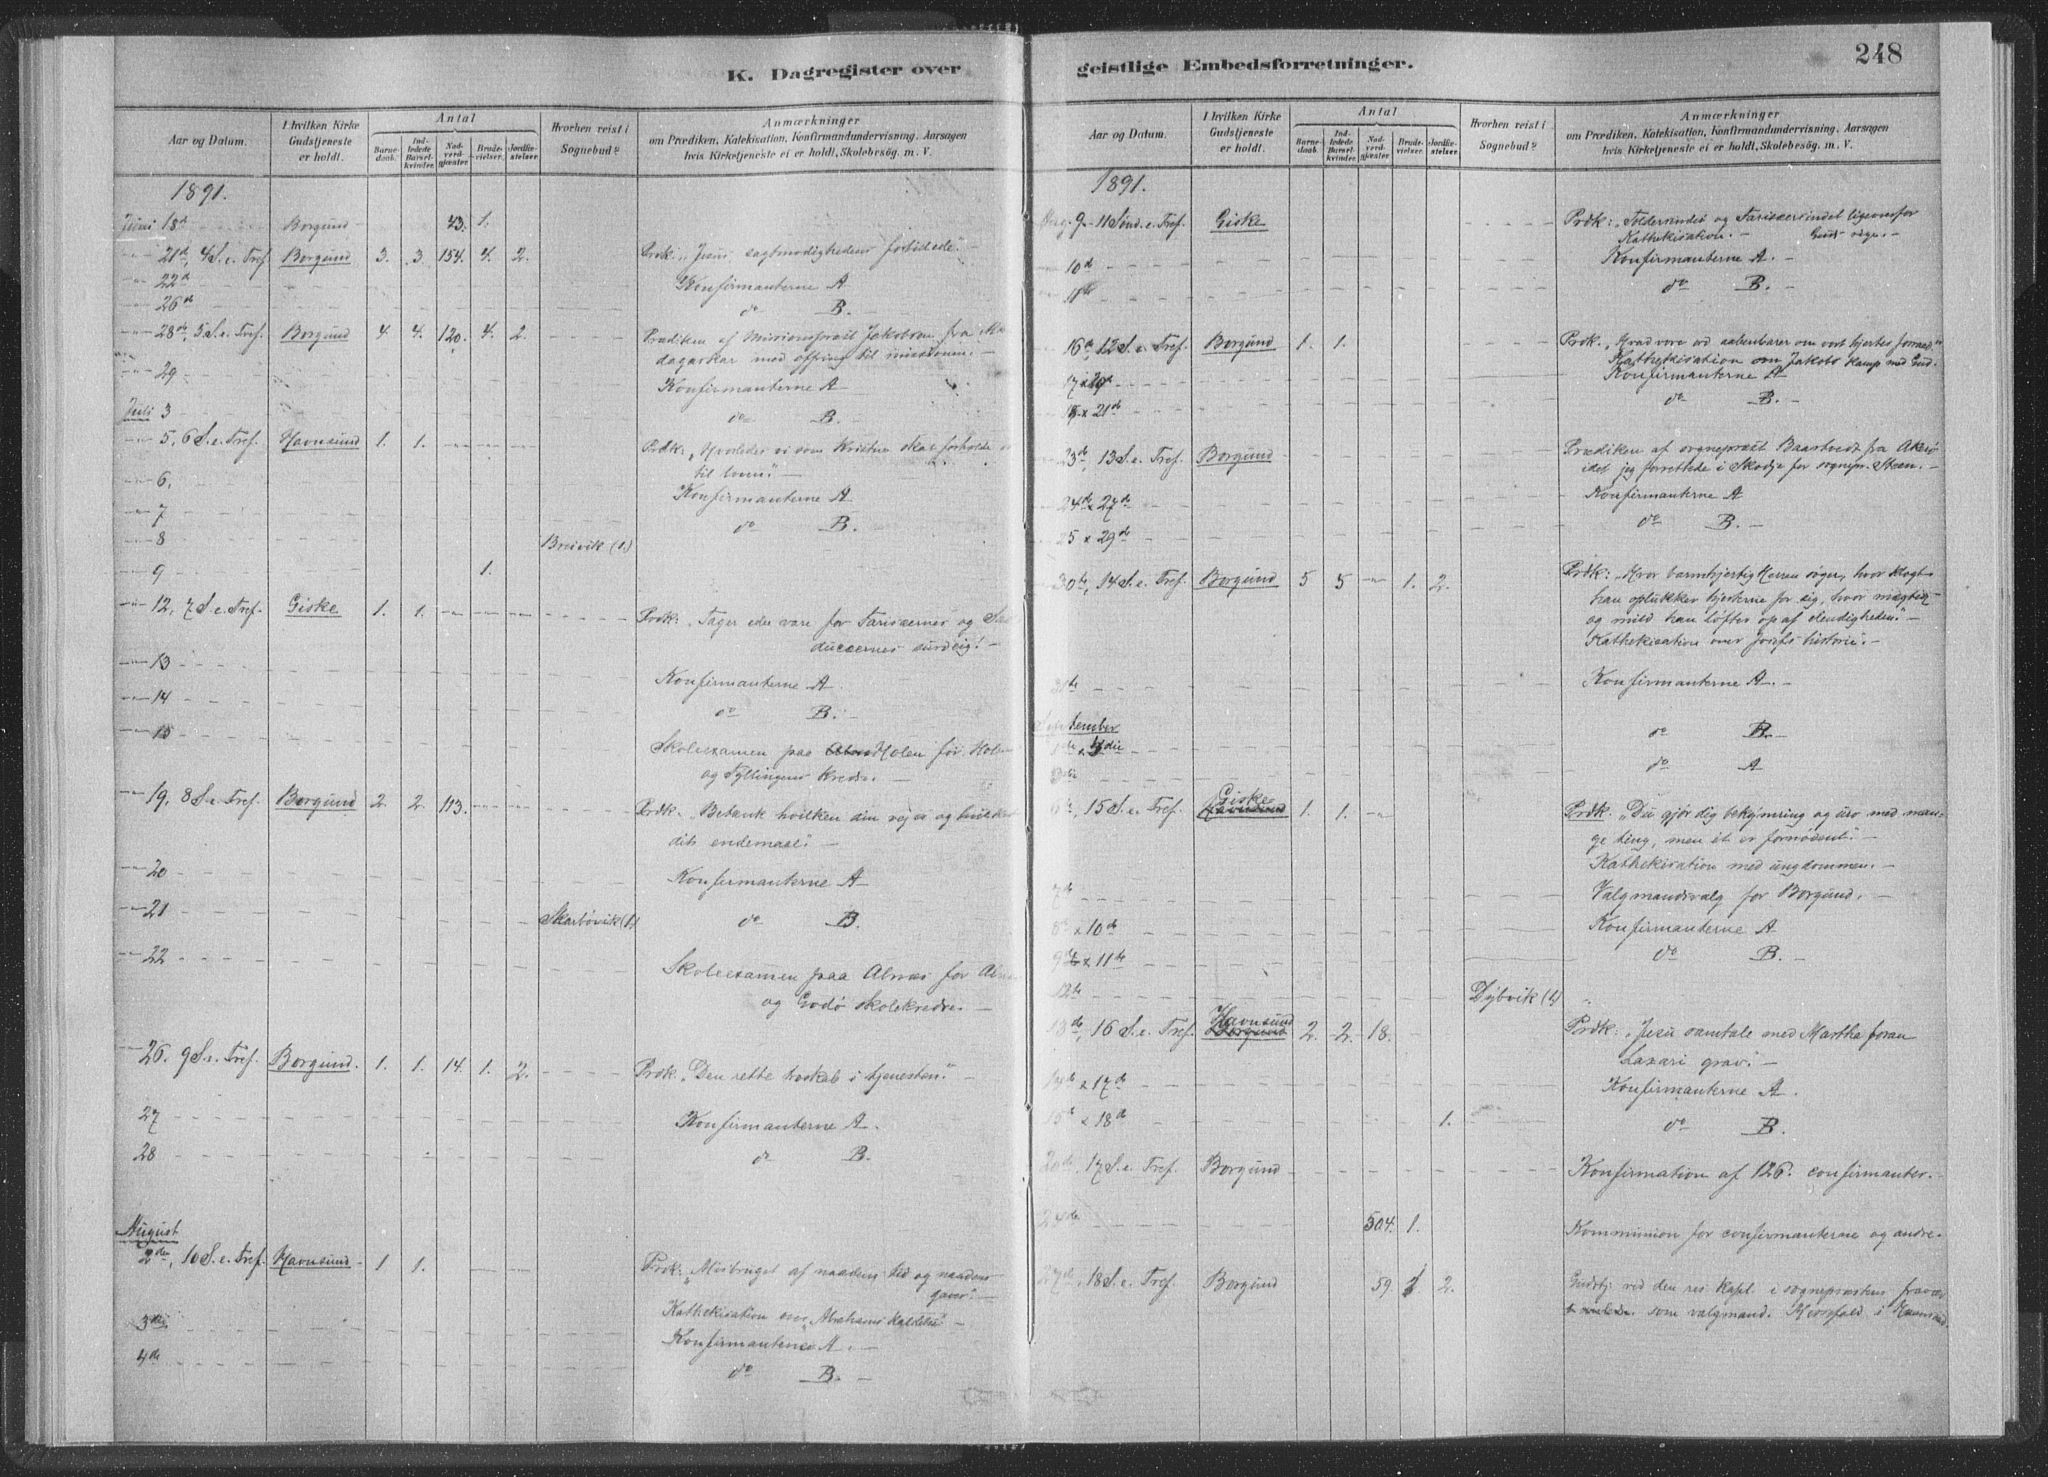 K. Dagregister over
Aar og Datum.
I hvilken Kirke Gudstjeneste er holdt.
Antal
Barnedaab.
Indledede Barselkvinder.
Nadverdgjæster
Brudevielser.
Jordfæstelser.
Hvorhen reist i Sognebud?
Anmærkninger
om Prædiken, Katekisation, Konfirmandundervisning, Aarsagen
hvis Kirketjeneste ei er holdt, Skolebesög. m. V.
1891.
Juni 18de Borgund 43. 1.
21de, 4 S. e. Tref. Borgund 3. 3. 154. 4. 2. Prdk: „Jesus, sagtmodighedens forbillede.“
22de Konfirmanterne A
26de do B.
28de, 5 S. e. Tref. Borgund 4. 4. 120. 4. 2. Prædiken af Missionsprest Jakobsen fra Ma
dagaskar med offring til missionen.
29 Konfirmanterne A
Juli 3 do B.
5. 6 S. e. Tref. Havnsund 1. 1. Prdk: „Hvorledes vi som Kristne skal forholde os
til loven.“
6. Konfirmanterne A
7 do B.
8 Breivik (1.)
9 1.
12, 7 S. e. Tref. Giske 1. 1. Prdk: „Tager eder vare for Farisæernes og Sad
ducæernes surdeig!
13 Konfirmanterne A.
14 do B.
15 Skoleexamen paa Holen for Holen
og Fyllingens kreds.
19. 8 S. e. Tref. Borgund 2. 2. 113. Prdk: „Betænk hvilken din vej er og hvilket
dit endemaal“
20 Konfirmanterne A
21 Skarbøvik (1) do B.
22 Skoleexamen paa Alnæs for Alnæs
og Godø skolekredse.
26. 9 S. e. Tref. Borgund. 1. 1. 14. 1. 2. Prdk. „Den rette troskab i tjenesten.“
27 Konfirmanterne A.
28 do B.
August
2den, 10 S. e. Tref. Havnsund 1 1. Prdk: „Misbruget af naadens tid og naadens
gaver“.
Kathekisation over „Abrahams kaldelse“
3die Konfirmanterne A.
4de do B.
geistlige Embedsforretninger.
248
Aar og Datum.
I hvilken Kirke Gudstjeneste er holdt.
Antal
Barnedaab.
Indledede Barselkvinder.
Nadverdgjæster
Brudevielser.
Jordfæstelser.
Hvorhen reist i Sognebud?
Anmærkninger
om Prædiken, Katekisation, Konfirmandundervisning, Aarsagen
hvis Kirketjeneste ei er holdt, Skolebesög m. V.
1891.
Aug. 9. 11 Sønd. e. Tref. Giske Prdk: „Toldersindet og Farisæersindet ligeoverfor
Kathekisation. Guds rige.
10de Konfirmanterne A.
11te do B.
16de, 12 S. e. Tref. Borgund 1. 1. Prdk. „Hvad vore ord aabenbarer om vort hjertes forraad“
Kathekisation om Jakobs kamp med Gud.
Konfirmanterne A
21de do B.
23de, 13 S. e. Tref. Borgund Prædiken af sogneprest Baastvedt fra
idet jeg forrettede i Skodje for sognepr. Steen.
24de x 27de Konfirmanterne A
25 x 29de do B.
30te, 14 S. e. Tref. Borgund 5 5 1. 2. Prdk: „Hvor barmhjertig Herren søger, hvor klogt
han oplukker hjerterne for sig, hvor mægtig
og mild han løfter op af elendigheden.“
Kathekisation over Josefs historie.
31te Konfirmanterne A.
September
do B.
do A
15 S. e. Tref. Giske 1. 1. Prdk. „Du gjør dig bekymring og uro med man-
ge ting, men ét er fornødent“.
Kathekisation med ungdommen.
7de Valgmandsvalg for Borgund.
8de x 10de Konfirmanterne A
9de x 11te do B.
12te Dybvik (1)
13de, 16 S. e. Tref. Havnsund 2. 2. 18. Prdk: „Jesu samtale med Martha foran
Lazari grav.“
14de x 17de Konfirmanterne A.
15de x 18de 1. do B.
20de, 17 S. e. Tref. Borgund Konfirmation af 126. confirmanter.
24de 504. 1. Kommunion for confirmanterne og andre.
27de, 18 S. e. Tref. Borgund 59. 1 2. Gudstj. ved den res. kapl. i sogneprestens fravær
som valgmand. Messefald i Havnsund.